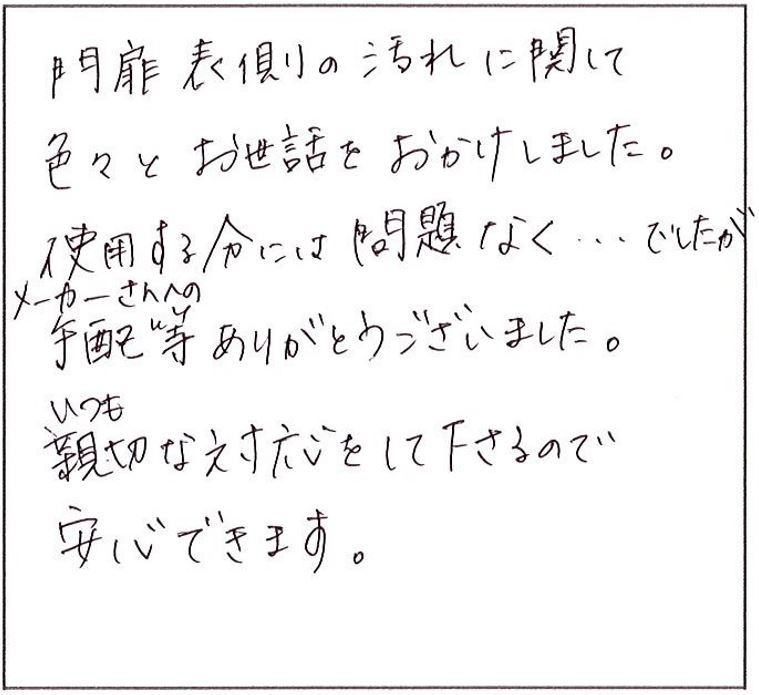 門扉表側の汚れに関して
色々とお世話をおかけしました。
使用する分には問題なく…でしたが
メーカーさんへの
手配等ありがとうございました。
いつも
親切な対応をして下さるので
安心できます。